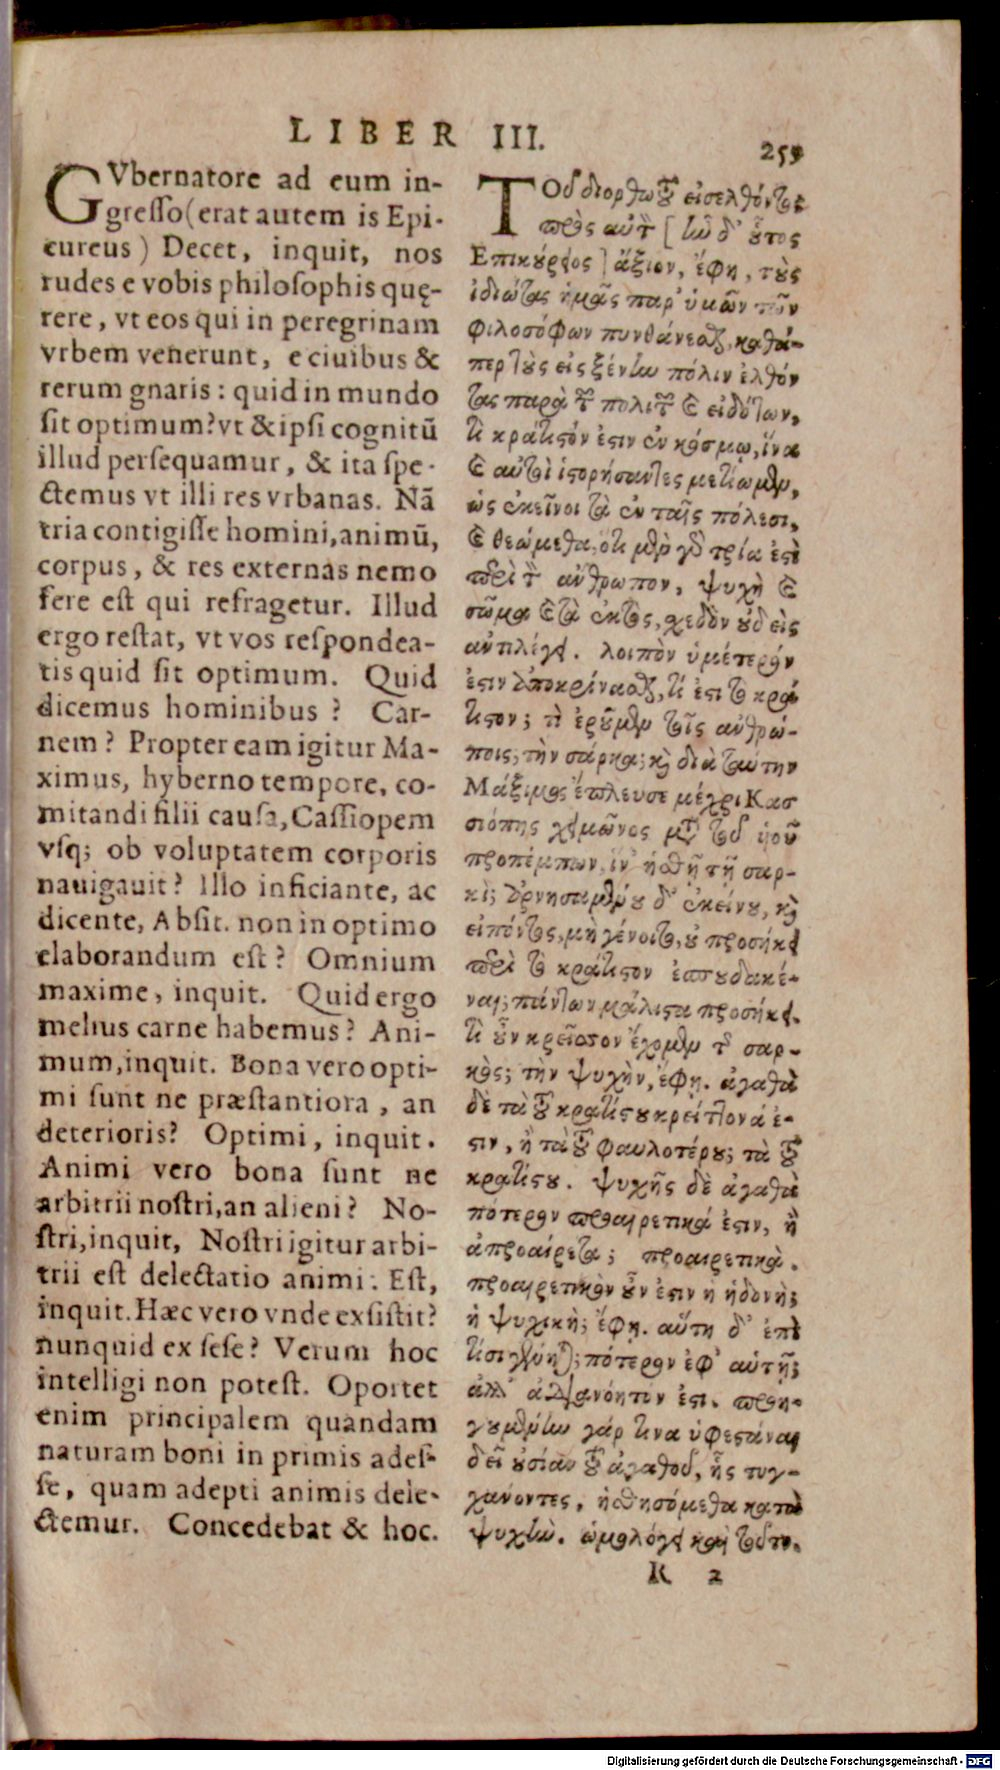 LIBER III.
259
GVbernatore ad eum in-
gresso (erat autem is Epi-
cureus) Decet, inquit, nos
rudes e vobis philosophis quę-
rere, vt eos qui in peregrinam
vrbem venerunt, e ciuibus &
rerum gnaris: quid in mundo
sit optimum? vt & ipsi cognitū
illud persequamur, & ita spe-
ctemus vt illi res vrbanas. Nā
tria contigisse homini, animū,
corpus, & res externas nemo
fere est qui refragetur. Illud
ergo restat, vt vos respondea-
tis quid sit optimum. Quid
dicemus hominibus? Car-
nem? Propter eam igitur Ma-
ximus, hyberno tempore, co-
mitandi filii causa, Cassiopem
vsq; ob voluptatem corporis
nauigauit? Illo inficiante, ac
dicente, Absit. non in optimo
elaborandum est? Omnium
maxime, inquit. Quid ergo
melius carne habemus? Ani-
mum, inquit. Bona vero opti-
mi sunt ne præstantiora, an
deterioris? Optimi, inquit.
Animi vero bona sunt ne
arbitrii nostri, an alieni? No-
stri, inquit, Nostri igitur arbi-
trii est delectatio animi: Est,
inquit. Hæc vero vnde exsistit?
nunquid ex sese? Verum hoc
intelligi non potest. Oportet
enim principalem quandam
naturam boni in primis ades-
se, quam adepti animis dele-
ctemur. Concedebat & hoc.
ΤΟῦ διορθωτοῦ εἰσελθόντος
πρὸς αὐτὸν [ ἦν δ' οὗτος
Επικούρειος ] ἄξιον, ἔφη, τοὺς
ἰδιώτας ἡμᾶς παρ' ὑμῶν τῶν
φιλοσόφων πυνθάνεσθαι, καθά-
περ τοὺς εἰς ξένην πόλιν ἐλθόν
τας παρὰ τῶν πολιτῶν καὶ εἰδότων,
τί κράτιστόν ἐστιν ἐν κόσμῳ, ἵνα
καὶ αὐτοὶ ἱστορήσαντες μετίωμεν,
ὡς ἐκεῖνοι τὰ ἐν ταῖς πόλεσι,
καὶ θεώμεθα, ὅτι μὲν γὰρ τρία ἐστὶ
περὶ τὸν ἄνθρωπον, ψυχὴ καὶ
σῶμα καὶ τὰ ἐκτὸς, σχεδὸν οὐδεὶς
ἀντιλέγει. λοιπὸν ὑμέτερόν
ἐστιν ἀποκρίνασθαι, τί ἐστι τὸ κρά
τιστον; τί ἐροῦμεν τοῖς ἀνθρώ-
ποις; τὴν σάρκα; καὶ διὰ ταύτην
Μάξιμος ἔπλευσε μέχρι Κασ
σιόπης χειμῶνος μετὰ τοῦ ὑιοῦ
προπέμπων, ἵν' ἡσθῇ τῇ σαρ-
κί; ἀρνησαμένου δ' ἐκείνου, καὶ
εἰπόντος, μὴ γένοιτο, οὐ προσήκει
περὶ τὸ κράτιστον ἐσπουδακέ-
ναι; πάντων μάλιστα προσήκει.
τί οὖν κρεῖσσον ἔχομεν τῆς σαρ-
κός; τὴν ψυχὴν, ἔφη. ἀγαθὰ
δὲ τὰ τοῦ κρατίστου κρείττονά ἐ-
στιν, ἢ τὰ τοῦ φαυλοτέρου; τὰ τοῦ
κρατίστου. ψυχῆς δὲ ἀγαθὰ
πότερον προαιρετικά ἐστιν, ἢ
ἀπροαίρετα; προαιρετικά.
προαιρετικὸν οὖν ἐστιν ἡ ἡδονὴ;
ἡ ψυχική; ἔφη. αὕτη δ' ἐπὶ
τίσι γίνεται; πότερον ἐφ' αὑτῇ;
ἀλλ' ἀδιανόητόν ἐστι. προη-
γουμένην γάρ τινα ὑφεστάναι
δεῖ οὐσίαν τοῦ ἀγαθοῦ, ἧς τυγ-
χάνοντες, ἡσθησόμεθα κατὰ
ψυχήν. ὡμολόγει καὶ τοῦτο.
R 2
Digitalisierung gefördert durch die Deutsche Forschungsgemeinschaft - DFG